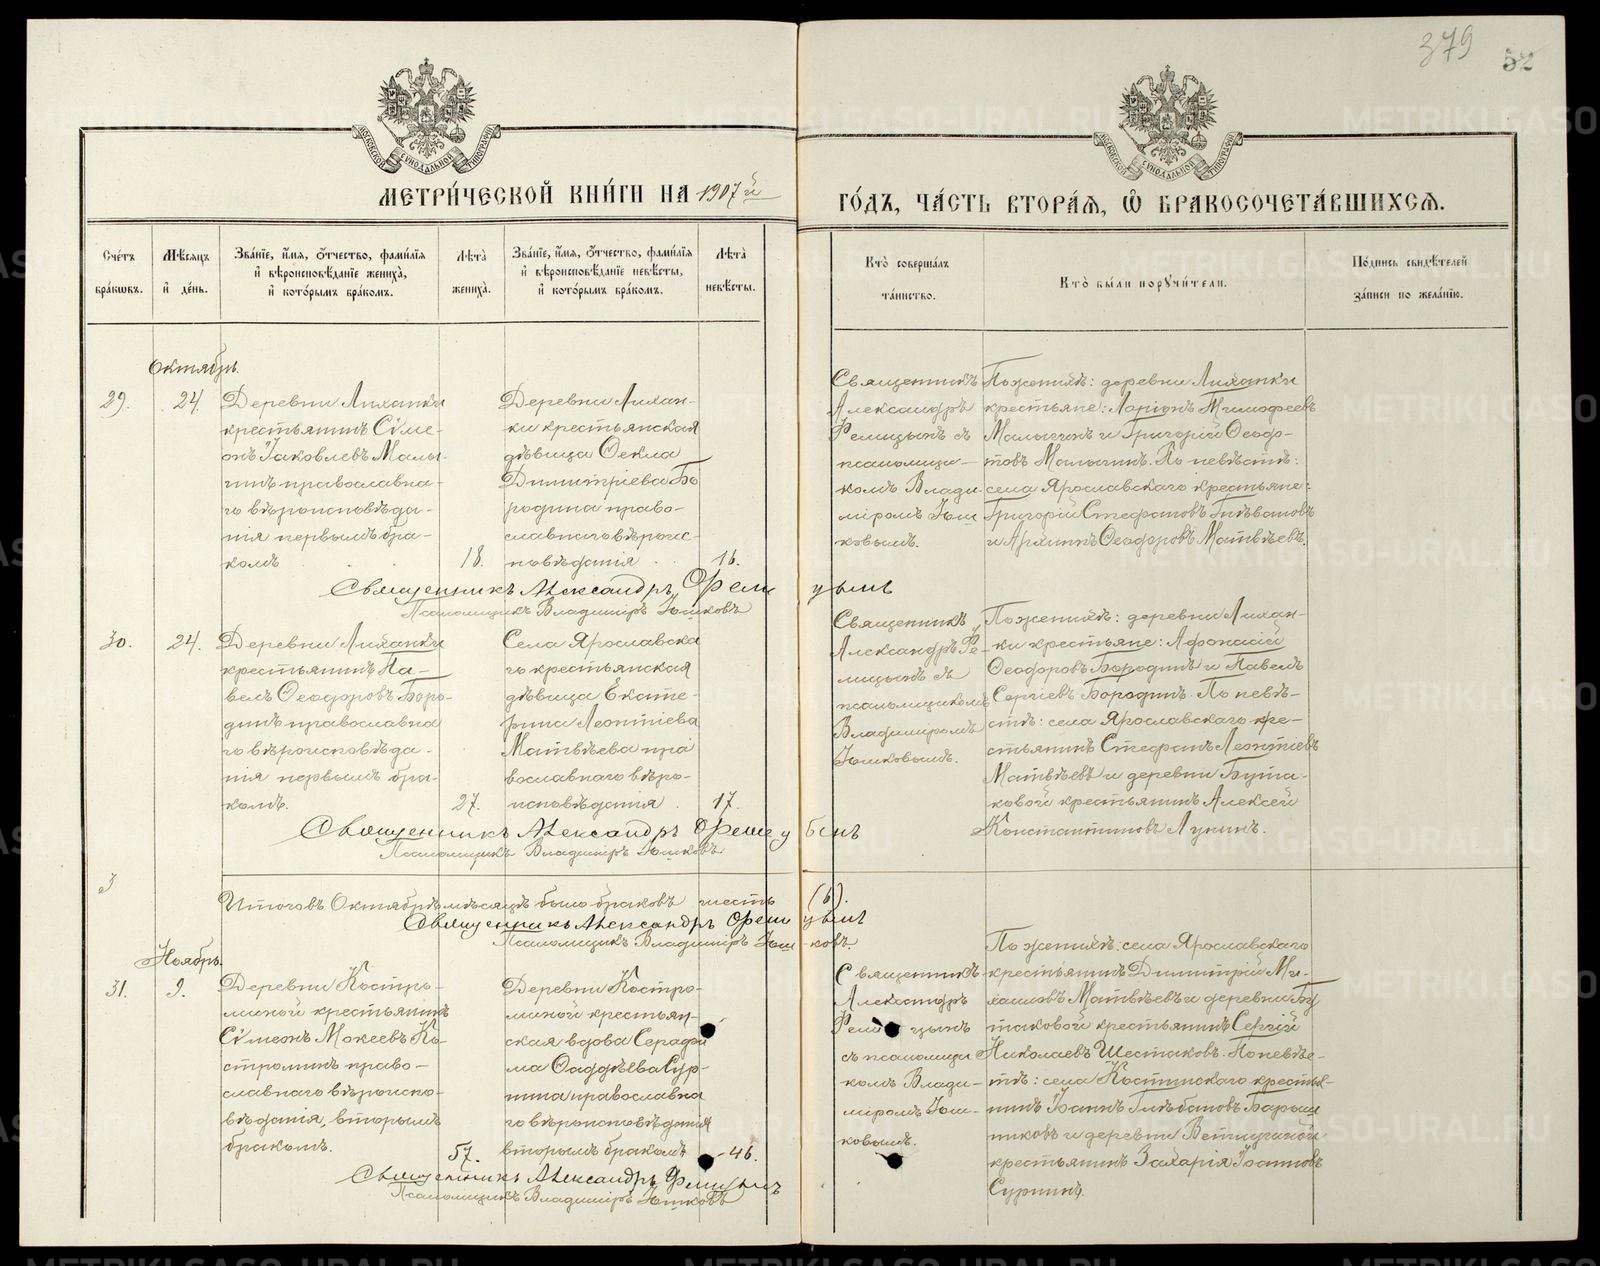 379
52
МОСКОВСКОЙ СѴНОДАЛЬНОЙ ТИПОГРАФІИ
МОСКОВСКОЙ СѴНОДАЛЬНОЙ ТИПОГРАФІИ
МЕТРИ́ЧЕСКОЙ КНИ́ГИ НА 1907й
ГО́ДЪ, ЧА́СТЬ ВТОРА́Ѧ, Ѽ БРАКОСОЧЕТА́ВШИХСѦ.
Сче́тъ бра́кѡвъ.
Мѣ́сяцъ и҆ де́нь.
Зва́нїе, и҆́мѧ, ѻ҆́тчество, фами́лїѧ и҆ вѣроисповѣ́данїе жениха̀, и҆ кото́рымъ бра́комъ.
Лѣ́та жениха̀.
Зва́нїе, и҆́мѧ, ѻ҆́тчество, фами́лїѧ и҆ вѣроисповѣ́данїе невѣ́сты, и҆ кото́рымъ бра́комъ.
Лѣ́та невѣ́сты.
Кто̀ соверша́лъ та́инство.
Кто̀ бы́ли порꙋчи́тели.
По́дпись свидѣ́телей за́писи по жела́нїю.
Октябрь.
29.
24.
Деревни Лиханки
крестьянинъ Сѵме-
онъ Іаковлевъ Малы-
гинъ православна-
го вѣроисповѣда-
нія первымъ бра-
комъ
18.
Деревни Лихан-
ки крестьянская
дѣвица Ѳекла
Димитріева Бо
родина право-
славнаго вѣроис-
повѣданія
16.
Священникъ
Александръ
Ѳемицынъ съ
псаломщи-
комъ Влади-
міромъ Юш
ковымъ.
По женихѣ: деревни Лиханки
крестьяне: Ларіонъ Тимофеевъ
Малыгинъ и Григорій Ѳеоф-
товъ Малыгинъ. По невѣстѣ:
села Ярославскаго крестьяне:
Григорій Стефановъ
и Архипъ Ѳеодоровъ Матвѣевъ.
Священникъ Александръ
Псаломщикъ Владиміръ Юшковъ
30.
24.
Деревни Лиханки
крестьянинъ Па-
велъ Ѳеодоровъ Боро-
динъ православна
го вѣроисповѣда-
нія первымъ бра-
комъ.
27.
Села Ярославска
го крестьянская
дѣвица Екате-
рина Леонтіева
Матвѣева пра
вославнаго вѣро-
исповѣданія
17.
Священникъ
Александръ Ѳе-
мицынъ съ
псаломщикомъ
Владиміромъ
Юшковымъ.
По женихѣ: деревни Лихан-
ки крестьяне: Афонасій
Ѳеодоровъ Бородинъ и Павелъ
Сергіевъ Бородинъ. По невѣ-
стѣ: села Ярославскаго кре-
стьянинъ Стефанъ Леонтіевъ
Матвѣевъ и деревни Бута-
ковой крестьянинъ Алексей
Константиновъ Лунинъ.
Священникъ Александръ
Псаломщикъ Владиміръ Юшковъ
Итого въ Октябрѣ мѣсяцѣ было браковъ шесть (6).
Священникъ Александръ
Псаломщикъ Владиміръ Юшковъ
Ноябрь.
31.
9.
Деревни Костро-
миной крестьянинъ
Сѵмеонъ Мокеевъ Ко-
строминъ право-
славнаго вѣроиспо-
вѣданія, вторымъ
бракомъ.
57.
Деревни Костро-
миной крестьян-
ская вдова Серафи
ма Ѳаддѣева Сур-
нина православна
го вѣроисповѣданія
вторымъ бракомъ
46.
Священникъ
Александръ
Ѳемицынъ
съ псаломщи
комъ Влади-
міромъ Юш-
ковымъ.
По женихѣ: села Ярославскаго
крестьянинъ Димитрій Ми-
хаиловъ Матвѣевъ и деревни Бу
таковой крестьянинъ Сергій
Николаевъ Шестаковъ. По невѣс-
тѣ: села Костинскаго крестья-
нинъ Іоаннъ Глѣбановъ
никовъ и деревни Ветлугиной
крестьянинъ Захарія Іоанновъ
Сурнинъ.
Священникъ Александръ
Псаломщикъ Владиміръ Юшковъ
METRIKI.GASO-URAL.RU